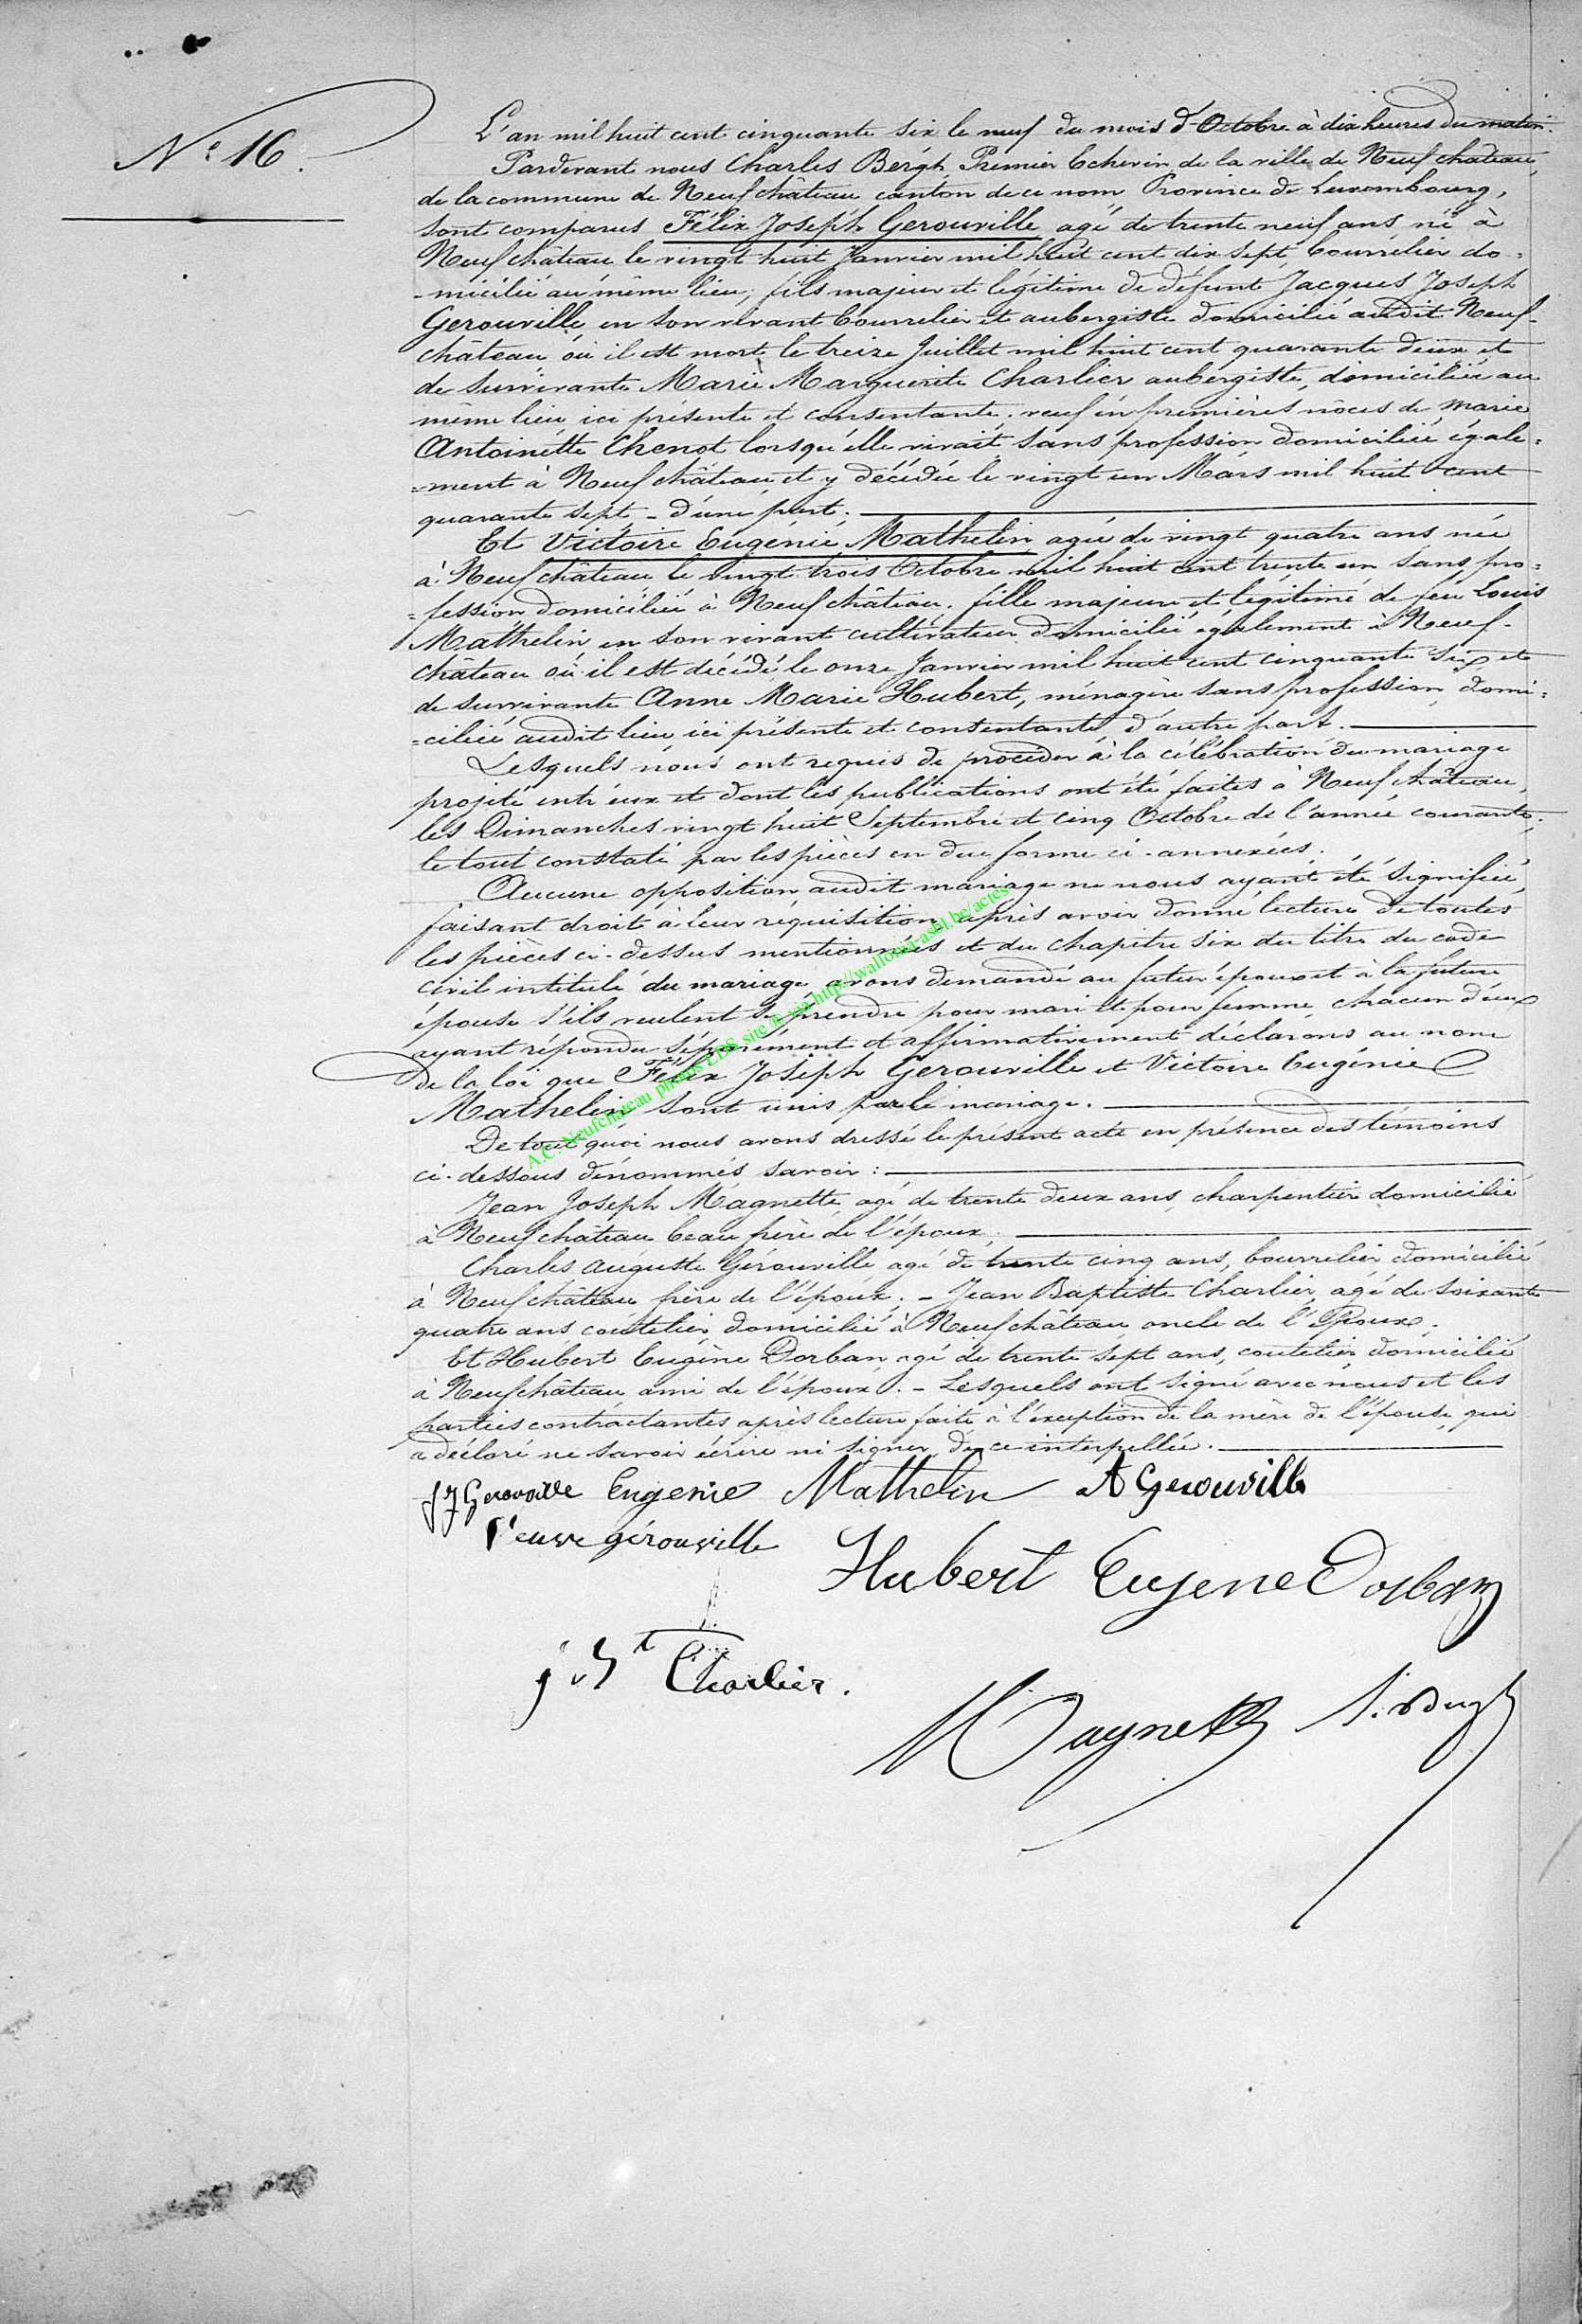 N.° 16.
L'an mil huit cent cinquante six le neuf du mois d'Octobre à dix heures du matin.
Pardevant nous Charles Bergh, Premier Echevin de la ville de Neufchateau,
de la commune de Neufchâteau canton de ce nom Province de Luxembourg,
sont comparus Félix Joseph Gerouville agé de trente neuf ans né à
Neufchâteau le vingt huit Janvier mil huit cent dix sept, bourrélier do=
-micilié au même lieu, fils majeur et légitime de défunt Jacques Joseph
Gerouville en son vivant bourrelier et aubergiste domicilié audit Neuf-
château où il est mort le treize Juillet mil huit cent quarante deux et
de survivante Marie Marguerite Charlier aubergiste, domiciliée au
même lieu ici présente et consentante. veuf en premières nôces de Marie
Antoinette Chenot lorsqu'elle vivait sans profession domiciliée égale=
=ment à Neufchâteau et y décédée le vingt un Mars mil huit cent
quarante sept - d'une part.
Et Victoire Eugénie Mathelin agée de vingt quatre ans née
à Neufchâteau le vingt trois Octobre mil huit cent trente un sans pro=
=fession domiciliée à Neufchâteau, fille majeure et légitime de feu Louis
Mathelin en son vivant cultivateur domicilié également à Neuf-
château où il est décédé le onze Janvier mil huit cent cinquante six et
de survivante Anne Marie Hubert, ménagère sans profession domi=
=ciliée audit lieu ici présente et consentante, d'autre part.
Lesquels nous ont requis de procéder à la célébration du mariage
projeté entr'eux et dont les publications ont été faites à Neufchâteau,
les Dimanches vingt huit Septembre et cinq Octobre de l'année courante,
le tout constaté par les pièces en due forme ci-annexées.
Aucune opposition audit mariage ne nous ayant été signifiée,
faisant droit à leur réquisition, après avoir donné lecture de toutes
les pièces ci-dessus mentionnées et du chapitre six du titre du code
civil intitulé du mariage avons demandé au futur époux et à la future
épouse s'ils veulent se prendre pour mari et pour femme, chacun d'eux
ayant répondu séparément et affirmativement déclarons au nom
de la loi que Félix Joseph Gerouville et Victoire Eugénie
Mathelin sont unis par le mariage.
De tout quoi nous avons dressé le présent acte en présence des témoins
ci-dessous dénommés savoir :
Jean Joseph Magnette agé de trente deux ans, charpentier domicilié
à Neufchâteau beau frère de l'époux;
Charles Auguste Gérouville agé de trente cinq ans, bourrelier domicilié
à Neufchâteau frère de l'époux. - Jean Baptiste Charlier agé de soixante
quatre ans coutelier domicilié à Neufchâteau oncle de l'Epoux.
Et Hubert Eugène Dorban agé de trente sept ans, coutelier domicilié
à Neufchâteau ami de l'époux. - Lesquels ont signé avec nous et les
parties contractantes après lecture faite à l'exception de la mère de l'épouse, qui
a déclaré ne savoir écrire ni signer, de ce interpellée.
fJ Gerouville Eugenie Mathelin A Gerouville
Veuve gérouville
Hubert Eugene Dorban
j. Bt Charlier.
Magnette
A.C. Neufchateau photos LDS site le via http://wallonia-asbl.be/actes